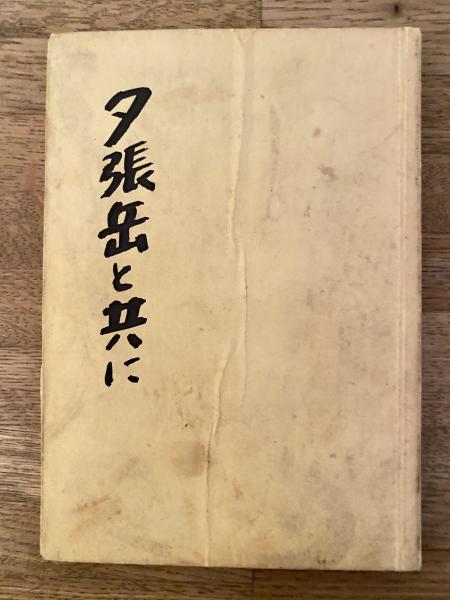 夕張岳と共に